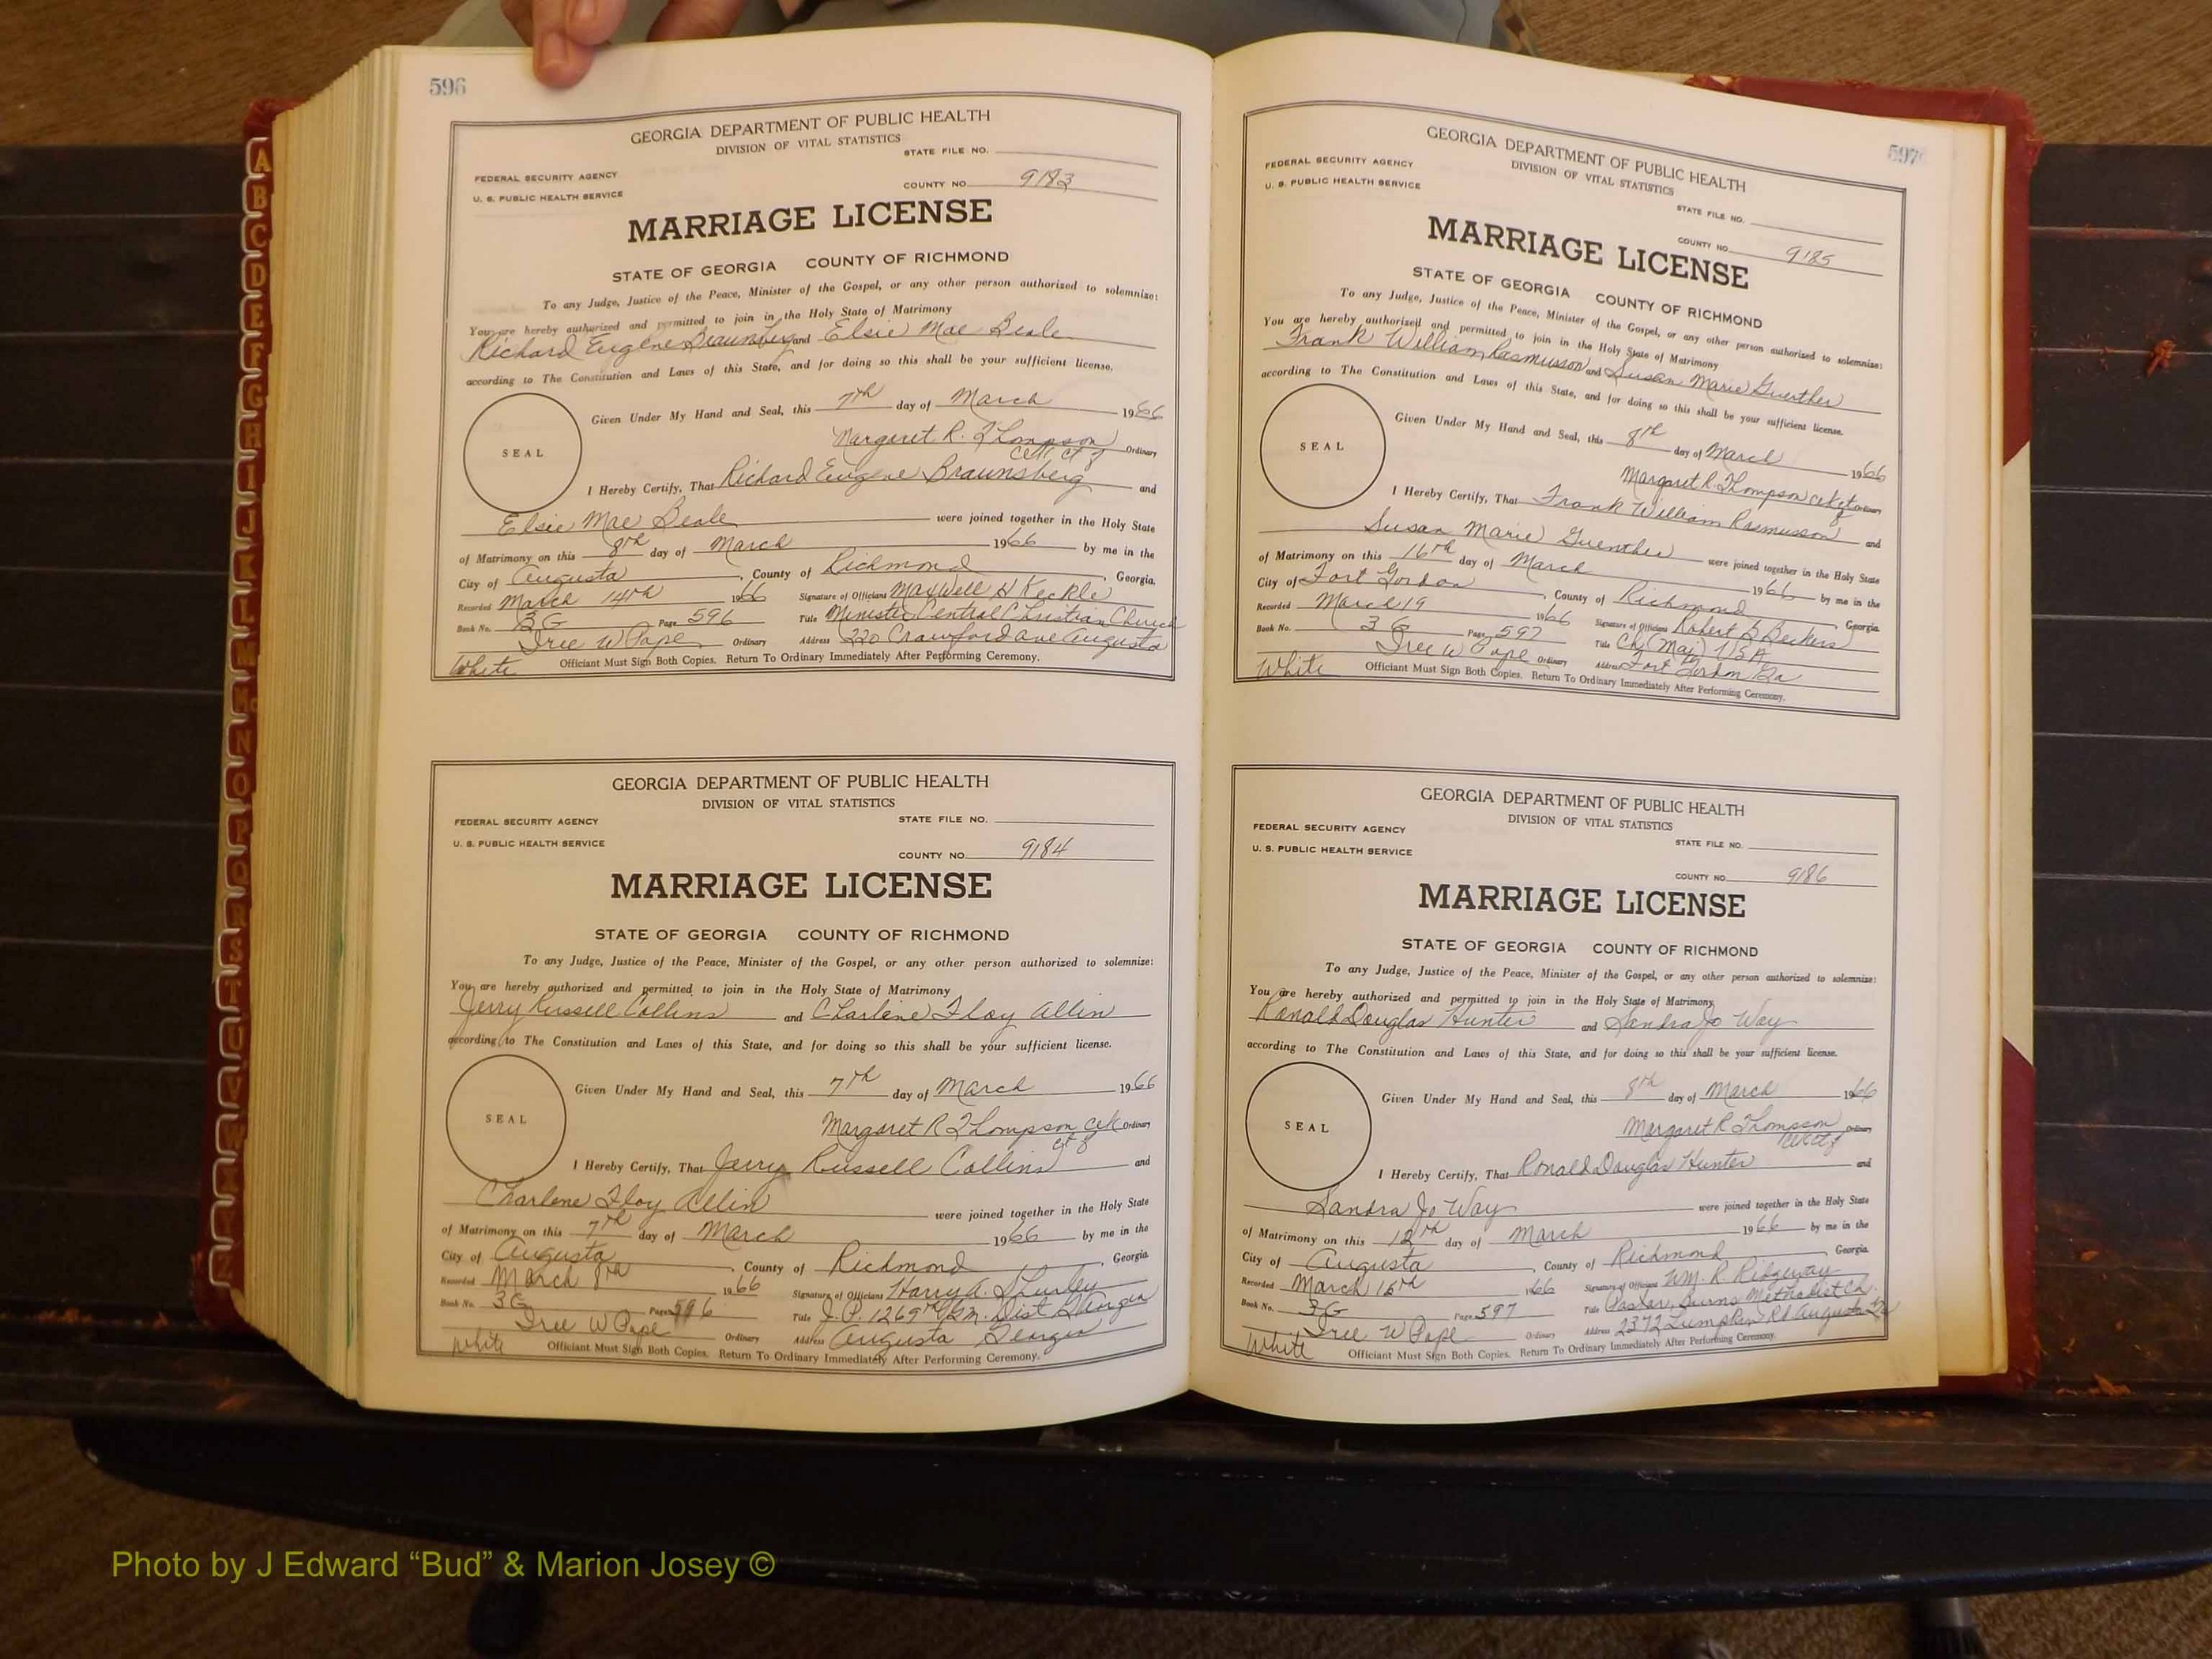 596
GEORGIA DEPARTMENT OF PUBLIC HEALTH
DIVISION OF VITAL STATISTICS
STATE FILE NO.
FEDERAL SECURITY AGENCY
U. S. PUBLIC HEALTH SERVICE
COUNTY NO. 9183
MARRIAGE LICENSE
STATE OF GEORGIA COUNTY OF RICHMOND
To any Judge, Justice of the Peace, Minister of the Gospel, or any other person authorized to solemnize:
You are hereby authorized and permitted to join in the Holy State of Matrimony
Richard Eugene Braunsberg and Elsie Mae Beale
according to The Constitution and Laws of this State, and for doing so this shall be your sufficient license.
SEAL
Given Under My Hand and Seal, this 7th day of March 1966
Margaret R. Thompson Ordinary
I Hereby Certify, That Richard Eugene Braunsberg and
Elsie Mae Beale were joined together in the Holy State
of Matrimony on this 8th day of March 1966 by me in the
City of Augusta, County of Richmond, Georgia.
Recorded March 14th 1966 Signature of Officiant Maxwell H Keckle
Book No. 3G Page 596 Title Minister Central Christian Church
Iree W Pope Ordinary Address 220 Crawford ave Augusta
White Officiant Must Sign Both Copies. Return To Ordinary Immediately After Performing Ceremony.
GEORGIA DEPARTMENT OF PUBLIC HEALTH
DIVISION OF VITAL STATISTICS
STATE FILE NO.
FEDERAL SECURITY AGENCY
U. S. PUBLIC HEALTH SERVICE
COUNTY NO. 9184
MARRIAGE LICENSE
STATE OF GEORGIA COUNTY OF RICHMOND
To any Judge, Justice of the Peace, Minister of the Gospel, or any other person authorized to solemnize:
You are hereby authorized and permitted to join in the Holy State of Matrimony
Jerry Russell Collins and Charlene Floy Allin
according to The Constitution and Laws of this State, and for doing so this shall be your sufficient license.
SEAL
Given Under My Hand and Seal, this 7th day of March 1966
Margaret R Thompson Ordinary
I Hereby Certify, That Jerry Russell Collins and
Charlene Floy Allin were joined together in the Holy State
of Matrimony on this 7th day of March 1966 by me in the
City of Augusta, County of Richmond, Georgia.
Recorded March 8th 1966 Signature of Officiant Harry A. Shurley
Book No. 3G Page 596 Title J. P. 1269th G.M. Dist Georgia
Iree W Pope Ordinary Address Augusta Georgia
White Officiant Must Sign Both Copies. Return To Ordinary Immediately After Performing Ceremony.
597
GEORGIA DEPARTMENT OF PUBLIC HEALTH
DIVISION OF VITAL STATISTICS
FEDERAL SECURITY AGENCY
U. S. PUBLIC HEALTH SERVICE
STATE FILE NO.
COUNTY NO. 9185
MARRIAGE LICENSE
STATE OF GEORGIA COUNTY OF RICHMOND
To any Judge, Justice of the Peace, Minister of the Gospel, or any other person authorized to solemnize:
You are hereby authorized and permitted to join in the Holy State of Matrimony
Frank William Rasmusson and Susan Marie Guenther
according to The Constitution and Laws of this State, and for doing so this shall be your sufficient license.
SEAL
Given Under My Hand and Seal, this 8th day of March 1966
Margaret R. Thompson Ordinary
I Hereby Certify, That Frank William Rasmusson and
Susan Marie Guenther were joined together in the Holy State
of Matrimony on this 16th day of March 1966 by me in the
City of Fort Gordon, County of Richmond, Georgia
Recorded March 19 1966 Signature of Officiant Robert Beckers
Book No. 3G Page 597 Title Ch (Maj) USA
Iree W Pope Ordinary Address Fort Gordon Ga
White Officiant Must Sign Both Copies. Return To Ordinary Immediately After Performing Ceremony.
GEORGIA DEPARTMENT OF PUBLIC HEALTH
DIVISION OF VITAL STATISTICS
FEDERAL SECURITY AGENCY
STATE FILE NO.
U. S. PUBLIC HEALTH SERVICE
COUNTY NO. 9186
MARRIAGE LICENSE
STATE OF GEORGIA COUNTY OF RICHMOND
To any Judge, Justice of the Peace, Minister of the Gospel, or any other person authorized to solemnize:
You are hereby authorized and permitted to join in the Holy State of Matrimony
Ronald Douglas Hunter and Sandra Jo Way
according to The Constitution and Laws of this State, and for doing so this shall be your sufficient license.
SEAL
Given Under My Hand and Seal, this 8th day of March 1966
Margaret R Thompson Ordinary
I Hereby Certify, That Ronald Douglas Hunter and
Sandra Jo Way were joined together in the Holy State
of Matrimony on this 12th day of March 1966 by me in the
City of Augusta, County of Richmond, Georgia
Recorded March 15th 1966 Signature of Officiant WM. R. Ridgeway
Book No. 3G Page 597 Title Pastor, Burns Methodist Ch.
Iree W Pope Ordinary Address 2372 Lumpkin Rd Augusta Ga
White Officiant Must Sign Both Copies. Return To Ordinary Immediately After Performing Ceremony.
A
B
C
D
E
F
G
H
I
J
K
L
M
Mc
N
O
P
Q
R
S
T
U
V
W
X
Y
Z
Photo by J Edward “Bud” & Marion Josey ©